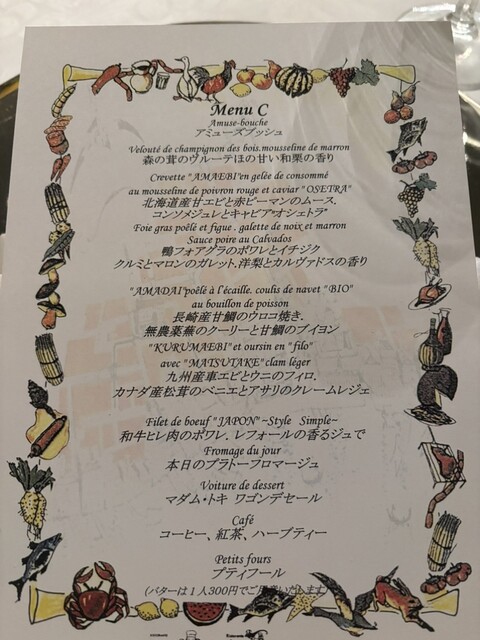 Menu C
Amuse-bouche
アミューズブッシュ
Velouté de champignon des bois.mousseline de marron
森の茸のヴルーテほの甘い和栗の香り
Crevette "AMAEBI"en gelée de consommé
au mousseline de poivron rouge et caviar "OSETRA"
北海道産甘エビと赤ピーマンのムース.
コンソメジュレとキャビア"オシェトラ"
Foie gras poêlé et figue . galette de noix et marron
Sauce poire au Calvados
鴨フォアグラのポワレとイチジク
クルミとマロンのガレット.洋梨とカルヴァドスの香り
"AMADAI"poêlé à l'écaille. coulis de navet "BIO"
au bouillon de poisson
長崎産甘鯛のウロコ焼き.
無農薬蕪のクーリーと甘鯛のブイヨン
"KURUMAEBI" et oursin en "filo"
avec "MATSUTAKE" clam léger
九州産車エビとウニのフィロ.
カナダ産松茸のベニエとアサリのクレームレジェ
Filet de boeuf "JAPON" ~Style Simple~
和牛ヒレ肉のポワレ. レフォールの香るジュで
Fromage du jour
本日のプラトーフロマージュ
Voiture de dessert
マダム・トキ ワゴンデセール
Café
コーヒー、紅茶、ハーブティー
Petits fours
プティフール
(バターは1人300円でご用意いたします)